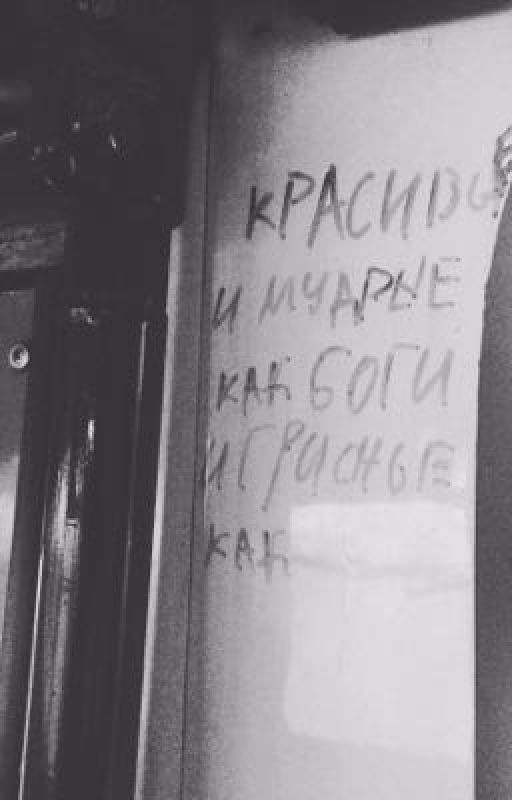 КРАСИВЫЕ
И МУДРЫЕ
КАК БОГИ
И ГРУСНЫЕ
КАК